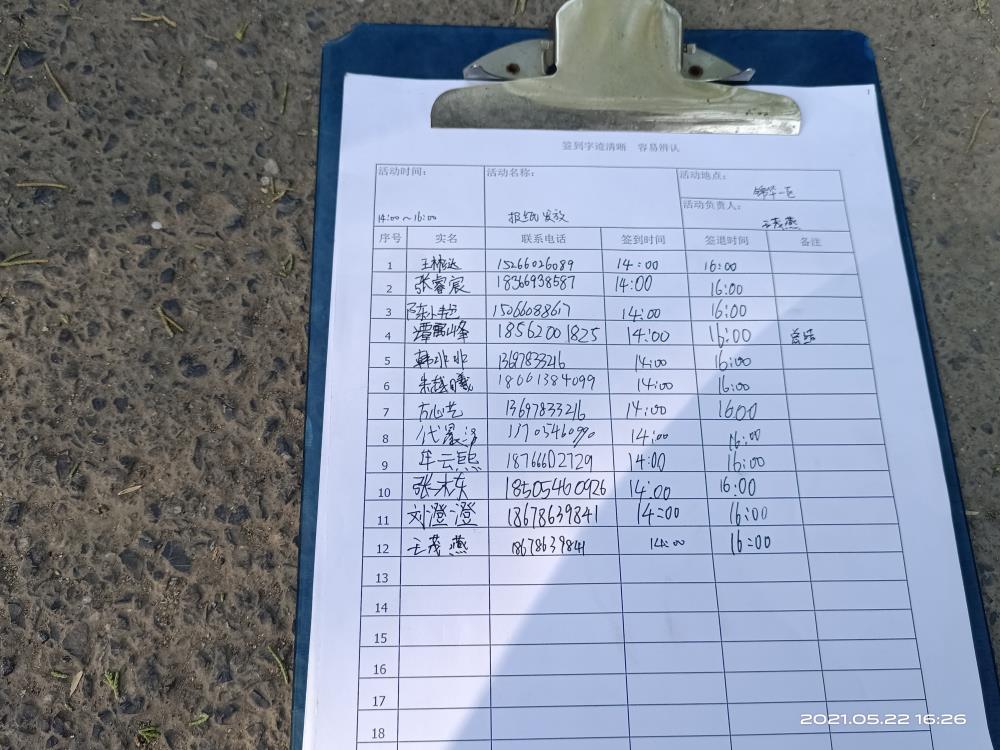 签到字迹清晰 容易辨认
活动时间: 活动名称: 活动地点:
锦华一区
活动负责人:
14:00~16:00 报纸发放 王茂燕
序号 实名 联系电话 签到时间 签退时间 备注
1 15266026089 14:00 16:00
2 张睿宸 18366938587 14:00 16:00
3 15066088617 14:00 16:00
4 18562001825 14:00 16:00 总结
5 韩非非 13697833216 14:00 16:00
6 18661384099 14:00 16:00
7 方心艺 13697833216 14:00 16:00
8 14:00 16:00
9 牟云熙 14:00 16:00
10 张木东 18505460926 14:00 16:00
11 刘澄澄 18678639841 14:00 16:00
12 王茂燕 18678639841 14:00 16:00
13
14
15
16
17
18
2021.05.22 16:26